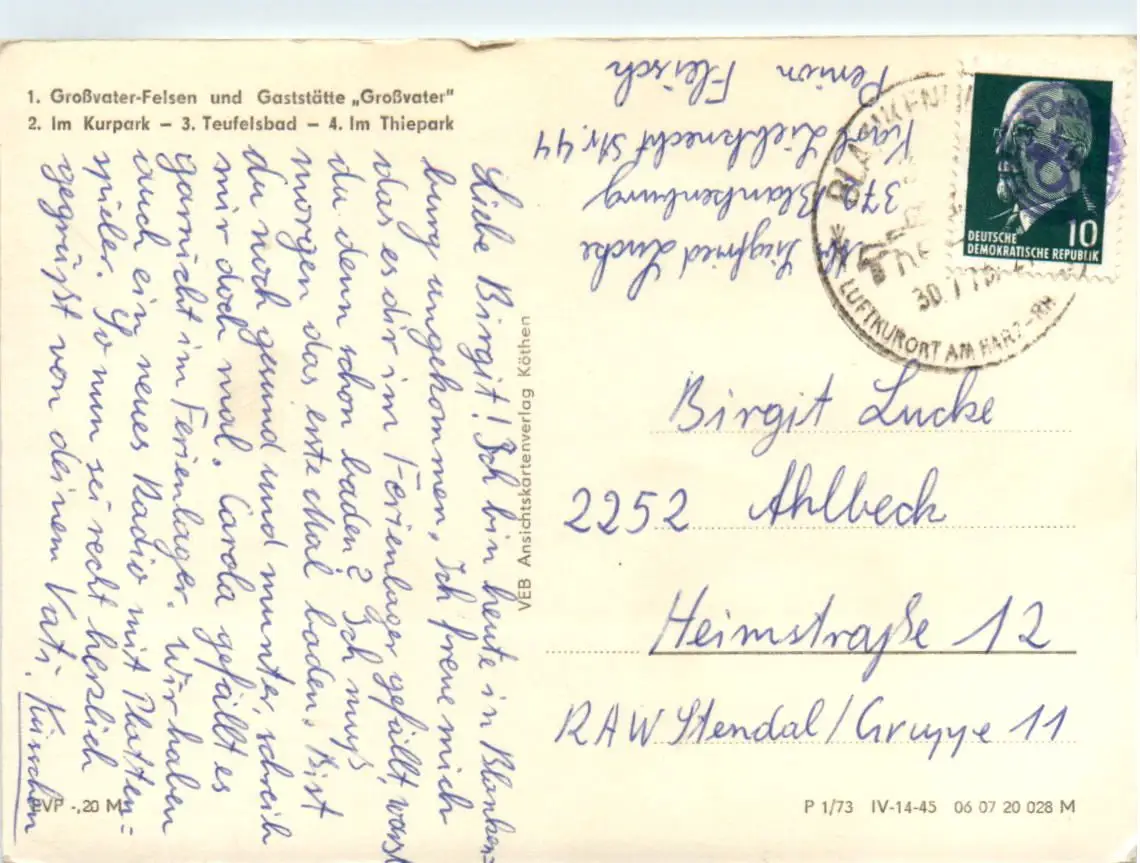 1. Großvater-Felsen und Gaststätte „Großvater"
2. Im Kurpark – 3. Teufelsbad – 4. Im Thiepark
Liebe Birgit! Ich bin heute in Blanken=
burg angekommen. Ich freue mich
das es dir im Ferienlager gefällt, warst
du denn schon baden? Ich muß
morgen das erste Mal baden. Bist
du noch gesund und munter, schreib
mir doch mal. Carola gefällt es
garnicht im Ferienlager. Wir haben
auch ein neues Radio mit Platten=
spieler. So nun sei recht herzlich
gegrüßt von deinem Vati. Küsschen
VEB Ansichtskartenverlag Köthen
Siegfried Lucke
372 Blankenburg
Karl Liebknecht Str. 44
Pension Fleisch
LUFTKURORT AM HARZ
DEUTSCHE
DEMOKRATISCHE REPUBLIK
10
Birgit Lucke
2252 Ahlbeck
Heimstraße 12
RAW Stendal/Gruppe 11
EVP -,20 M
P 1/73 IV-14-45 06 07 20 028 M